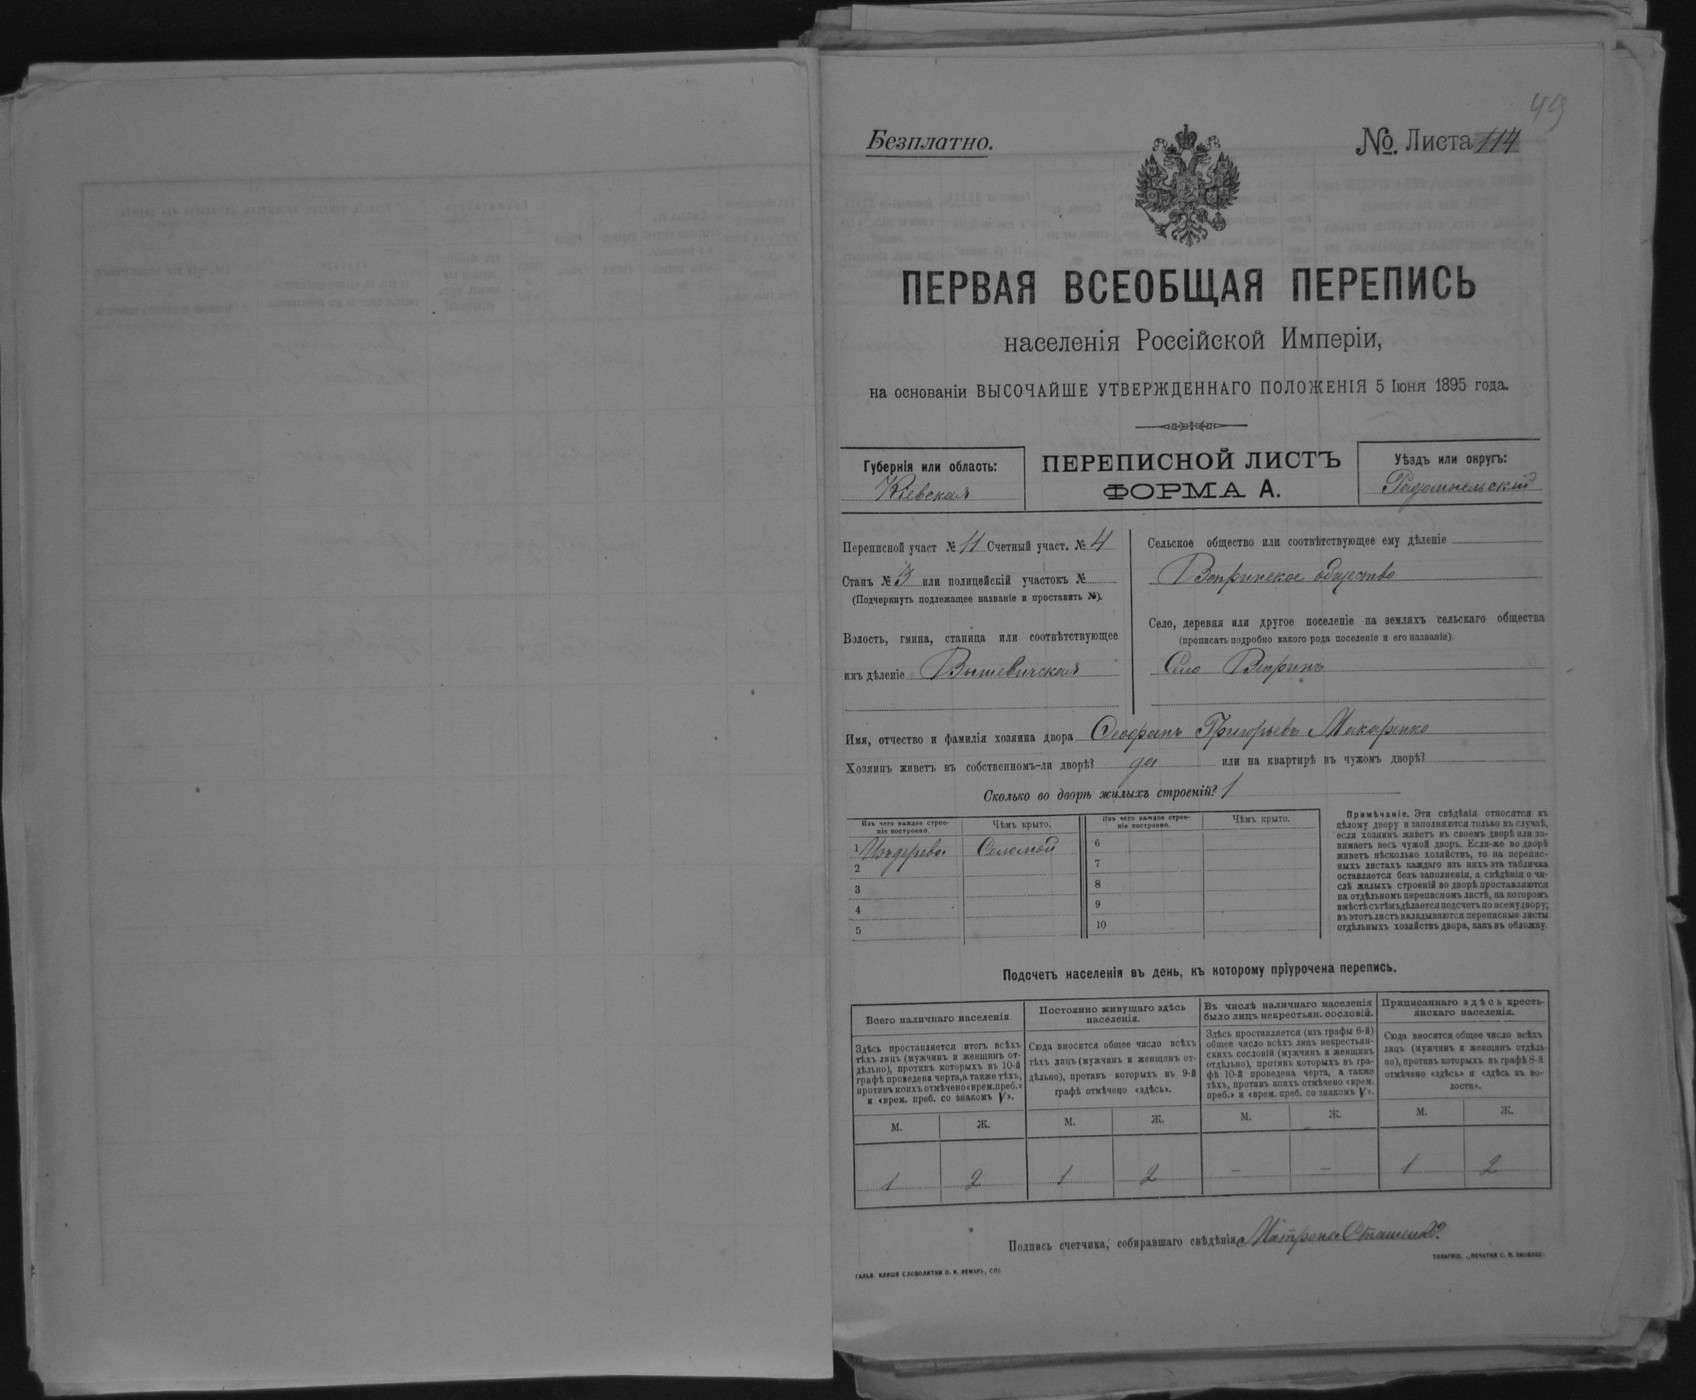 49
Безплатно.
№. Листа 114
ПЕРВАЯ ВСЕОБЩАЯ ПЕРЕПИСЬ
населенія Россійской Имперіи,
на основаніи ВЫСОЧАЙШЕ УТВЕРЖДЕННАГО ПОЛОЖЕНІЯ 5 Іюня 1895 года.
Губернія или область:
Кіевская
ПЕРЕПИСНОЙ ЛИСТЪ
ФОРМА А.
Уѣздъ или округъ:
Радомысльскій
Переписной участ № 11 Счетный участ. № 4
Станъ № 3 или полицейскій участокъ №
(Подчеркнуть подлежащее названіе и проставить №).
Волость, гмина, станица или соотвѣтствующее
имъ дѣленіе Вышевичская
Сельское общество или соотвѣтствующее ему дѣленіе
Вепринское общество
Село, деревня или другое поселеніе на земляхъ сельскаго общества
(прописать подробно какого рода поселеніе и его названіе)
Село Вепринъ
Имя, отчество и фамилія хозяина двора Феофанъ Григорьевъ Макаренко
Хозяинъ живетъ въ собственномъ-ли дворѣ? да или на квартирѣ въ чужомъ дворѣ?
Сколько во дворѣ жилыхъ строеній? 1
Изъ чего каждое строе-
ніе построено.
Чѣмъ крыто.
Изъ чего каждое строе-
ніе построено.
Чѣмъ крыто.
1 Изъ дерева Соломой
2
3
4
5
6
7
8
9
10
Примѣчаніе. Эти свѣдѣнія относятся къ
цѣлому двору и заполняются только въ случаѣ,
если хозяинъ живетъ въ своемъ дворѣ или за-
нимаетъ весь чужой дворъ. Если-же во дворѣ
живетъ нѣсколько хозяйствъ, то на перепис-
ныхъ листахъ каждаго изъ нихъ эта табличка
оставляется безъ заполненія, а свѣдѣнія о чи-
слѣ жилыхъ строеній во дворѣ проставляются
на отдѣльномъ переписномъ листѣ, на которомъ
вмѣстѣ съ тѣмъ дѣлается подсчетъ по всему двору;
въ этотъ листъ вкладываются переписные листы
отдѣльныхъ хозяйствъ двора, какъ въ обложку.
Подсчетъ населенія въ день, къ которому пріурочена перепись.
Всего наличнаго населенія
Здѣсь проставляется итогъ всѣхъ
тѣхъ лицъ (мужчинъ и женщинъ от-
дѣльно), противъ которыхъ въ 10-й
графѣ проведена черта, а также тѣхъ,
противъ коихъ отмѣчено «врем. преб.»
и «врем. преб. со знакомъ V».
М. Ж.
1 2
Постоянно живущаго здѣсь
населенія.
Сюда вносится общее число всѣхъ
тѣхъ лицъ (мужчинъ и женщинъ от-
дѣльно), противъ которыхъ въ 9-й
графѣ отмѣчено «здѣсь».
М. Ж.
1 2
Въ числѣ наличнаго населенія
было лицъ некрестьян. сословій.
Здѣсь проставляется (изъ графы 6-й)
общее число всѣхъ лицъ некрестьян-
скихъ сословій (мужчинъ и женщинъ
отдѣльно), противъ которыхъ въ гра-
фѣ 10-й проведена черта, а также
тѣхъ, противъ коихъ отмѣчено «врем.
преб.» и «врем. преб. со знакомъ V».
М. Ж.
– –
Приписаннаго здѣсь кресть-
янскаго населенія.
Сюда вносится общее число всѣхъ
лицъ (мужчинъ и женщинъ отдѣль-
но), противъ которыхъ въ графѣ 8-й
отмѣчено «здѣсь» и «здѣсь въ во-
лости».
М. Ж.
1 2
Подпись счетчика, собиравшаго свѣдѣнія
ГАЛЬВ. КЛИШЕ СЛОВОЛИТНИ О. И. ЛЕМАНЪ, СПБ.